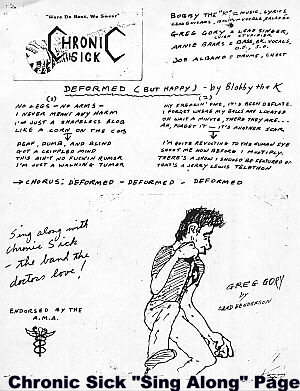 "Here Do Rest, We Sweat"
CHRONIC
SICK
BOBBY THE "K" = MUSIC, LYRICS
GREG GORY = LEAD SINGER,
ARNIE BARRS = BASS, VOCALS,
JOE ALBANO = DRUMS, CHEST
DEFORMED (BUT HAPPY) - by Blobby the K
(1)
NO LEGS - NO ARMS -
I NEVER MEANT ANY HARM
I'M JUST A SHAPELESS BLOB
LIKE A CORN ON THE COB
DEAF, DUMB, AND BLIND
GOT A CRIPPLED MIND
THIS AIN'T NO FUCKIN RUMOR
I'M JUST A WALKING TUMOR
(2)
MY IT'S BEEN DEFLATE.
I FORGET WHERE MY BALLS ARE LOCATED
OH WAIT A MINUTE, THERE THEY ARE...
AH, FORGET IT - IT'S ANOTHER SCAR
I'M QUITE REVOLTING TO THE HUMAN EYE
SHOOT ME NOW BEFORE I MULTIPLY.
THERE'S A SHOW I SHOULD BE FEATURED ON
THAT'S A JERRY LEWIS TELETHON
→ CHORUS: DEFORMED - DEFORMED - DEFORMED
Sing along with
Chronic Sick
- the band the
doctors love!
ENDORSED BY THE
A.M.A.
GREG GORY
by
BRAD HENDERSON
Chronic Sick "Sing Along" Page